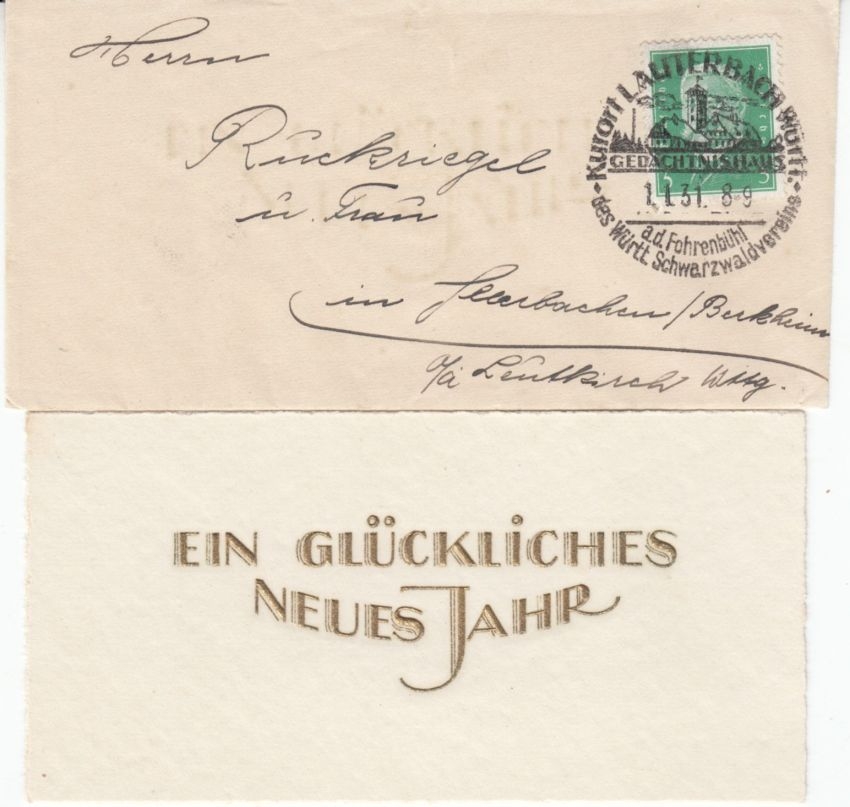 Herrn
Rückriegel
u. Frau
in /Berkheim
Leutkirch Wttg.
Kurort LAUTERBACH Württ.
GEDÄCHTNISHAUS
1.1.31. 8-9
a.d. Fohrenbühl
des Württ. Schwarzwaldvereins
5 5
EIN GLÜCKLICHES
NEUES JAHR